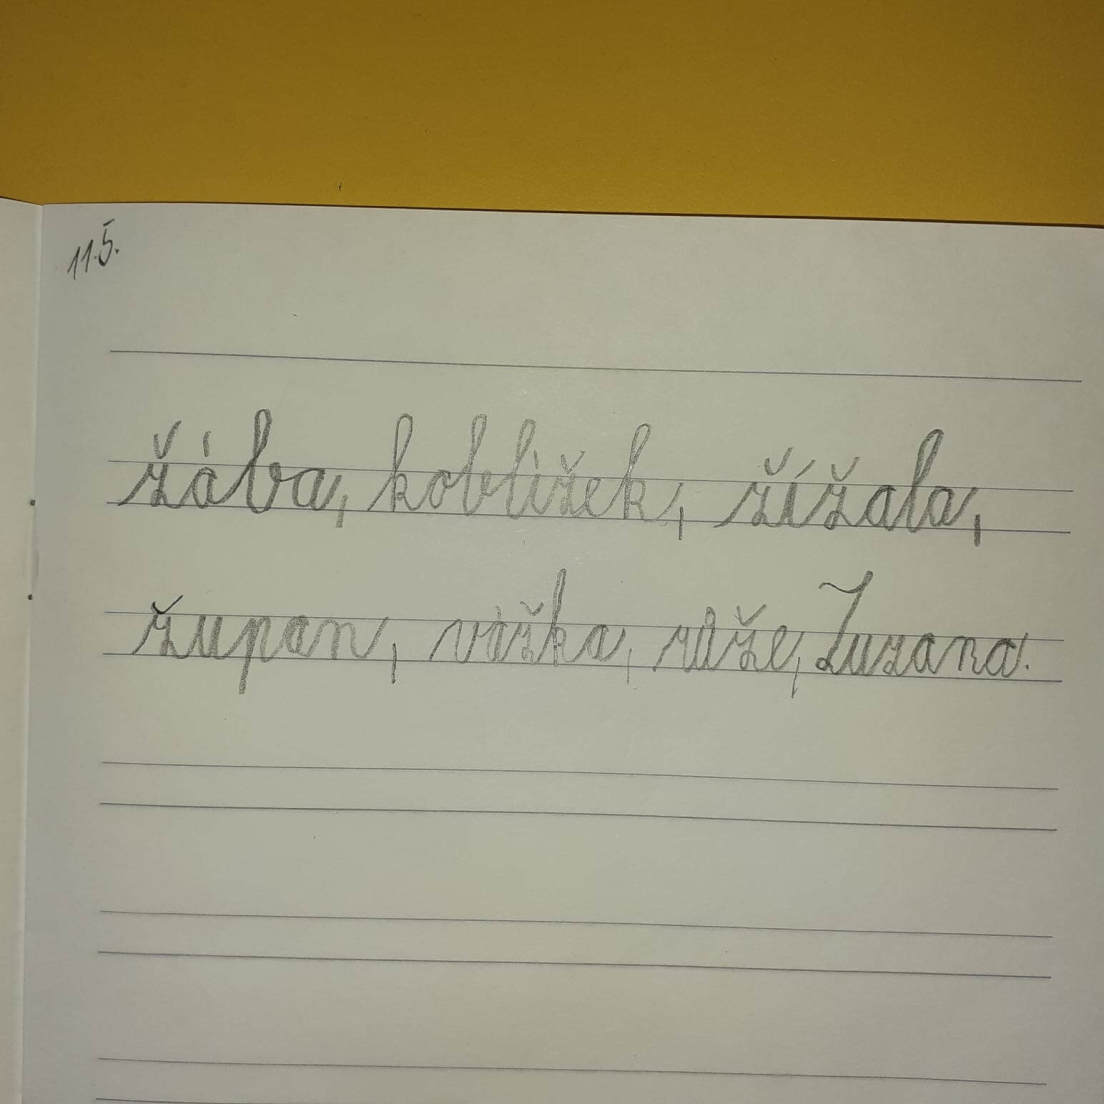 11.5.
žába, koblížek, žížala,
župan, vážka, růže, Zuzana.